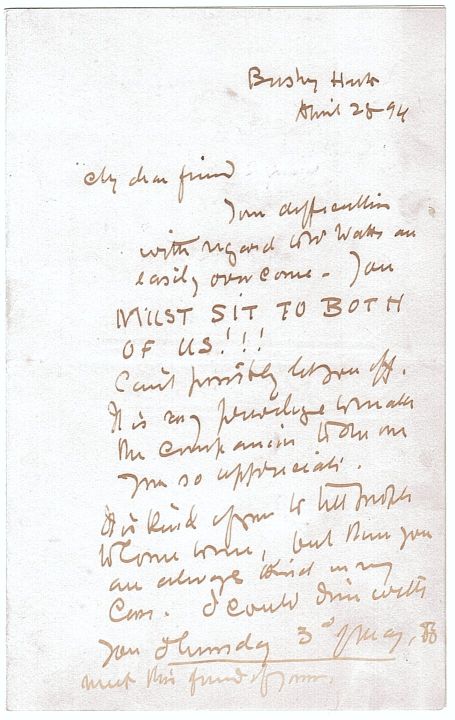 Bushey Herts
April 28 94
My dear friend
Your difficulties
with regard to Watts are
easily overcome - You
MUST SIT TO BOTH
OF US!!!
Can't possibly let you off.
It is my privilege to make
the companion to the one
you so appreciate.
It is kind of you to tell people
to come to me, but then you
are always kind in my
case. I could dine with
you Thursday 3d of May, to
meet this friend of yours.